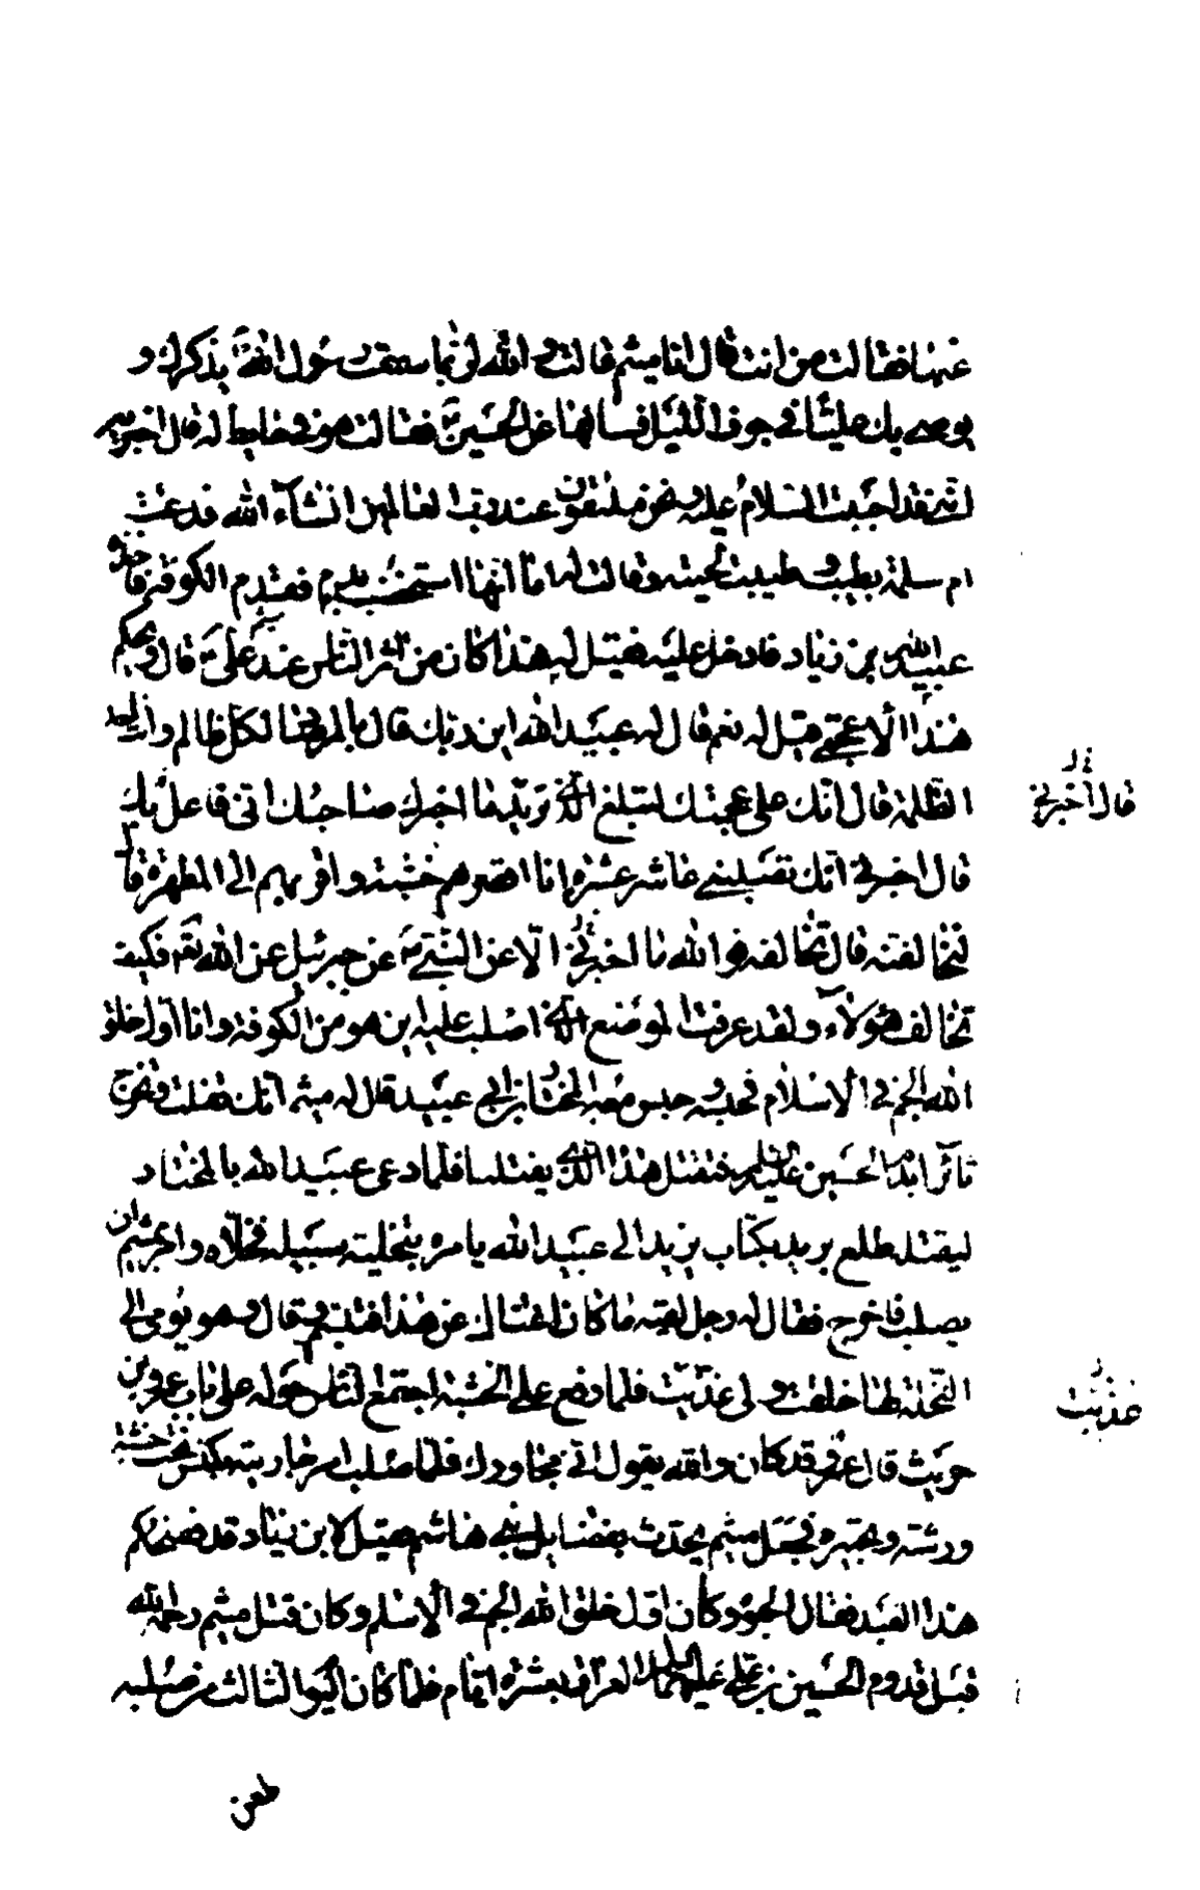 عنها فقالت من انت قال انا ميثم قالت والله لربما سمعت رسول الله ص يذكرك و
يوصي بك عليا في جوف الليل فسالها عن الحسين ع فقالت هو في حايط له قال اخبريه
انني قد احببت السلام عليه ونحن ملتقون عند رب العالمين انشاء الله فدعت
ام سلمة بطيب وطيبت لحيته وقالت له اما انها ستخضب بدم فقدم الكوفة فاخذه
عبيد الله بن زياد فادخل عليه فقيل له هذا كان من آثر الناس عند علي ع قال ويحكم
هذا الاعجمي قيل له نعم قال له عبيد الله اين ربك قال بالمرصاد لكل ظالم وانت احد
الظلمة قال انك على عجمتك لتبلغ الذي تريد ما اخبرك صاحبك اني فاعل بك
قال اخبرني انك تصلبني عاشر عشرة انا اقصرهم خشبة واقربهم الى المطهرة قال
لنخالفنه قال كيف تخالفه فوالله ما اخبرني الا عن النبي ص عن جبرئيل عن الله تع فكيف
تخالف هؤلاء ولقد عرفت الموضع الذي اصلب عليه اين هو من الكوفة وانا اول خلق
الله الجم في الاسلام فحبسه وحبس معه المختار بن ابي عبيد قال له ميثم انك تفلت وتخرج
ثائرا بدم الحسين عليه السلم فتقتل هذا الذي يقتلنا فلما دعى عبيد الله بالمختار
ليقتله طلع بريد بكتاب يزيد الى عبيد الله يامره بتخلية سبيله فخلاه وامر بميثم ان
يصلب فاخرج فقال له رجل لقيه ما كان اغناك عن هذا فتبسم وقال وهو يومي الى
النخلة لها خلقت ولي غذيت فلما رفع على الخشبة اجتمع الناس حوله على باب عمرو بن
حريث قال عمرو قد كان والله يقول اني مجاورك فلما صلب امر جاريته بكنس تحت خشبته
ورشه وتجميره فجعل ميثم يحدث بفضايل بني هاشم فقيل لابن زياد قد فضحكم
هذا العبد فقال الجموه وكان اول خلق الله الجم في الاسلم وكان قتل ميثم رحمه الله
قبل قدوم الحسين بن علي عليهما السلم العراق بعشرة ايام فلما كان اليوم الثالث من صلبه
طعن
قال اخبرني
غذيت